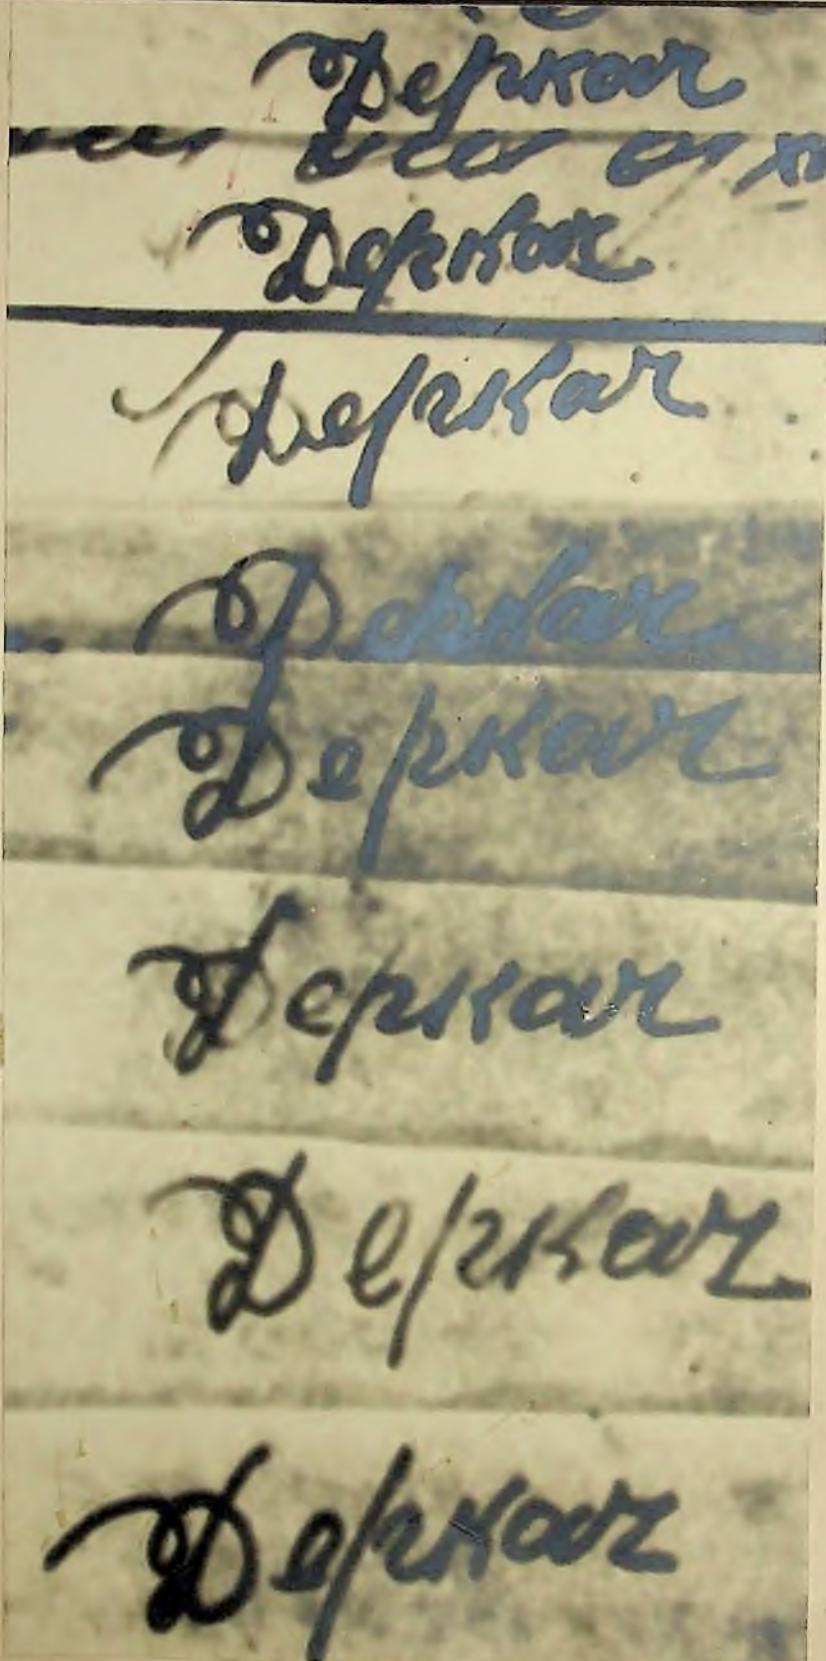 Деркач
Деркач
Деркач
Деркач
Деркач
Деркач
Деркач
Деркач